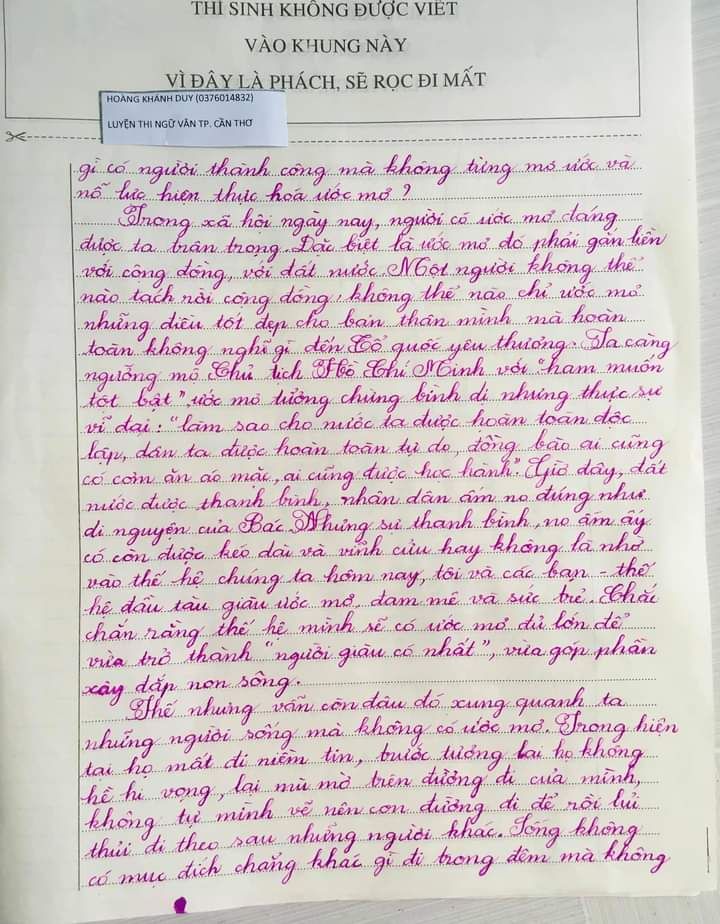 THÍ SINH KHÔNG ĐƯỢC VIẾT
VÀO KHUNG NÀY
VÌ ĐÂY LÀ PHÁCH, SẼ RỌC ĐI MẤT
HOÀNG KHÁNH DUY (0376014832)
LUYỆN THI NGỮ VĂN TP. CẦN THƠ
gì có người thành công mà không từng mơ ước và
nỗ lực hiện thực hoá ước mơ?
Trong xã hội ngày nay, người có ước mơ đáng
được ta trân trọng. Đặc biệt là ước mơ đó phải gắn liền
với cộng đồng, với đất nước. Một người không thể
nào tách rời cộng đồng, không thể nào chỉ ước mơ
những điều tốt đẹp cho bản thân mình mà hoàn
toàn không nghĩ gì đến Tổ quốc yêu thương. Ta càng
ngưỡng mộ Chủ tịch Hồ Chí Minh với "ham muốn
tột bật", ước mơ tưởng chừng bình dị nhưng thực sự
vĩ đại: "làm sao cho nước ta được hoàn toàn độc
lập, dân ta được hoàn toàn tự do, đồng bào ai cũng
có cơm ăn áo mặc, ai cũng được học hành". Giờ đây, đất
nước được thanh bình, nhân dân ấm no đúng như
di nguyện của Bác. Nhưng sự thanh bình, no ấm ấy
có còn được kéo dài và vĩnh cửu hay không là nhờ
vào thế hệ chúng ta hôm nay, tôi và các bạn - thế
hệ đầu tàu giàu ước mơ, đam mê và sức trẻ. Chắc
chắn rằng thế hệ mình sẽ có ước mơ đủ lớn để
vừa trở thành "người giàu có nhất", vừa góp phần
xây đắp non sông.
Thế nhưng vẫn còn đâu đó xung quanh ta
những người sống mà không có ước mơ. Trong hiện
tại họ mất đi niềm tin, trước tương lai họ không
hề hi vọng, lại mù mờ trên đường đi của mình,
không tự mình vẽ nên con đường đi để rồi lủi
thủi đi theo sau những người khác. Sống không
có mục đích chẳng khác gì đi trong đêm mà không